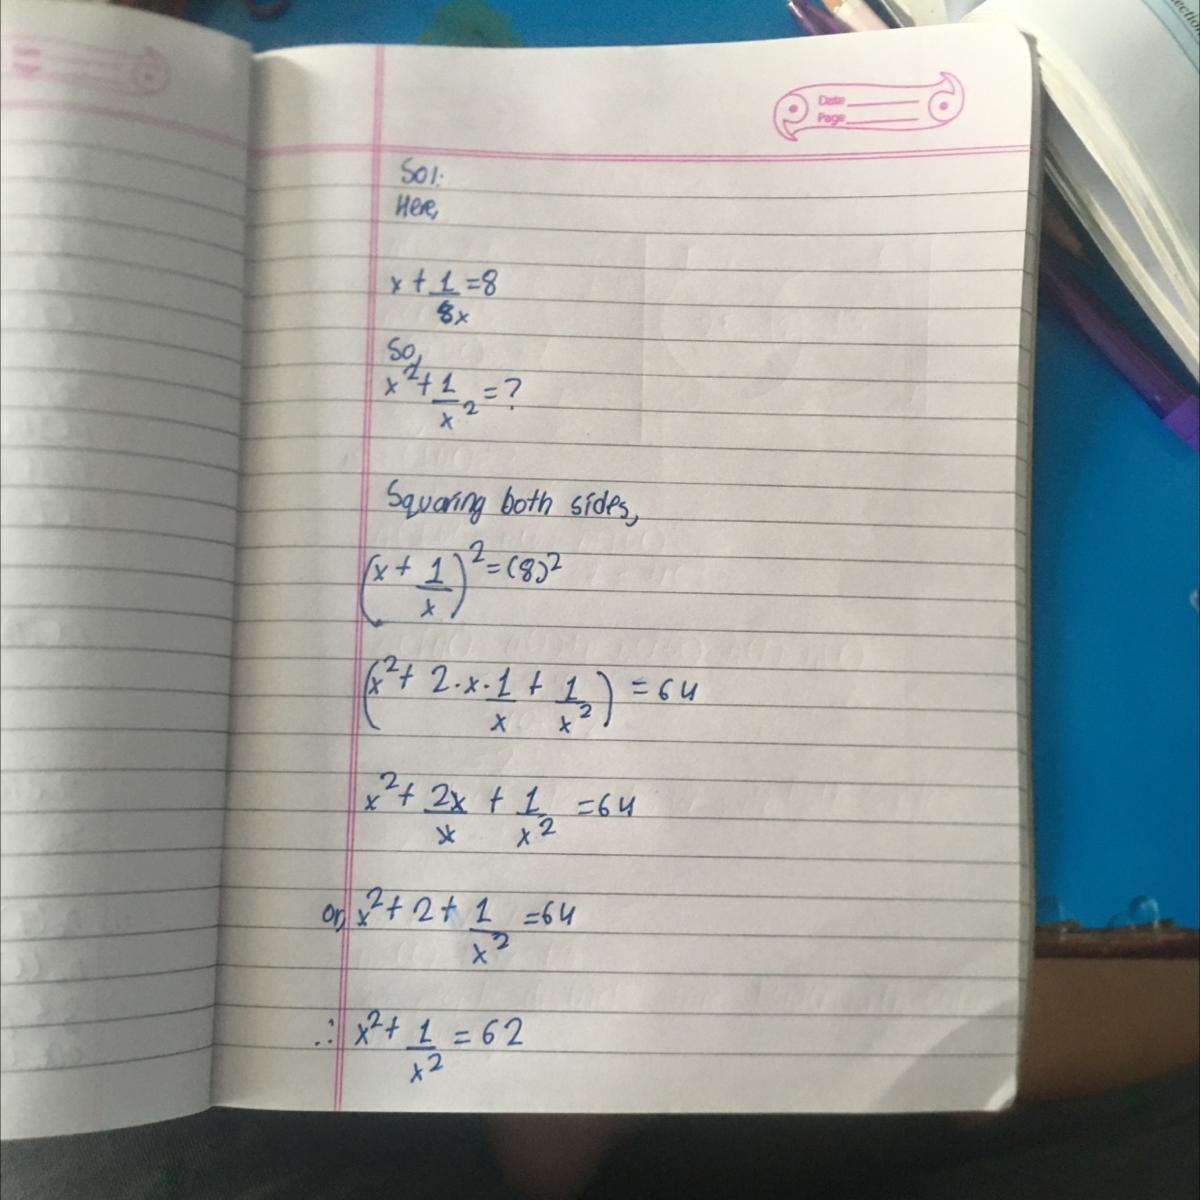 Date
Page
Sol:
Here,
x + 1/8x = 8
So,
x² + 1/x² = ?
Squaring both sides,
(x + 1/x)² = (8)²
(x² + 2·x·1/x + 1/x²) = 64
x² + 2x/x + 1/x² = 64
or, x² + 2 + 1/x² = 64
∴ x² + 1/x² = 62